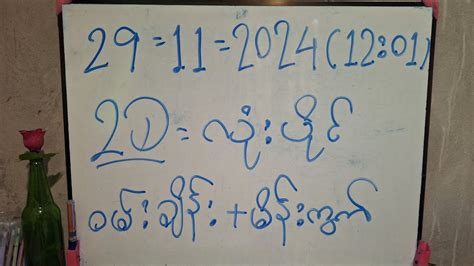 29=11=2024(12:01)
2D = လုံးပိုင်
ဝမ်းချိန်း+မိန်းကွက်